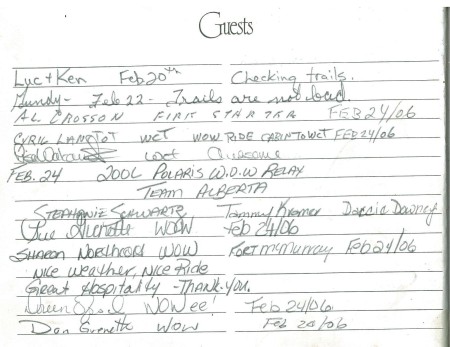 Guests
Luc + Ken Feb 20th Checking trails.
Mundy - Feb 22 - Trails are not bad.
AL CROSSON FIRST STAR TEA FEB 24/06
CYRIL LANGTOT WCT WOW RIDE CABIN TO WCT FEB 24/06
WCT Awesome
FEB. 24 2006 POLARIS W.O.W RELAY
TEAM ALBERTA
STEPHANIE SCHWARTZ Tammy Kramer Darcie Downey
WOW Feb 24/06
SHARON NORTHCOTT WOW FORT McMURRAY Feb 24/06
NICE WEATHER, NICE RIDE
Great Hospitality - THANK-YOU.
WOWee! Feb 24/06
Dan WOW Feb 24/06